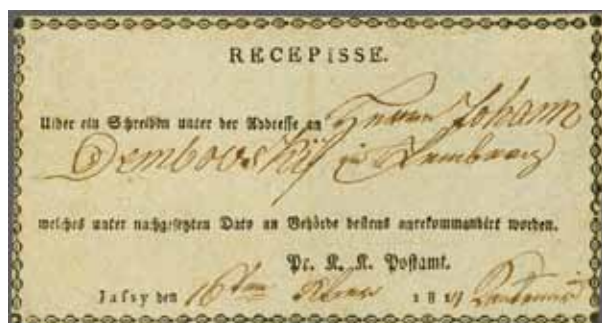 RECEPISSE.
Uiber ein Schreiben unter der Addresse an Herrn Johann
Dembovskij in Lemberg
welches unter nachgesetzten Dato an Behörde bestens anrekommandirt worden.
Pr. K. K. Postamt.
Jassy den 16ten 181